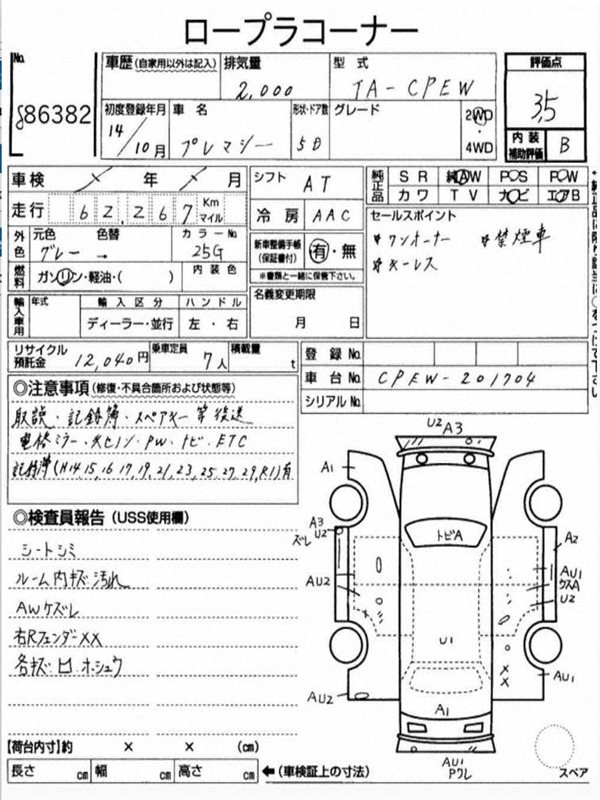 ロープラコーナー
No. 86382
車歴 (自家用以外は記入) 排気量 2,000 型式 TA-CPEW
評価点 3.5
初度登録年月 14/10月 車名 プレマシー 形状・ドア数 5D グレード 2WD・4WD
内装補助評価 B
車検 年 月 シフト AT
純正品 SR 純AW P○S P○W
カワ TV ナビ エアB
走行 62,267 Km マイル 冷房 AAC
セールスポイント
外色 元色 グレー 色替 → カラーNo. 25G
新車整備手帳(保証書付) 有・無
※書類と一緒に保管下さい。
*ワンオーナー *禁煙車
*キーレス
燃料 ガソリン・軽油・( ) 内装色
名義変更期限 月 日
輸入車用 年式 輸入区分 ハンドル
ディーラー・並行 左・右
リサイクル預託金 12,040円 乗車定員 7人 積載量 t
登録No.
車台No. CPEW-201704
シリアルNo.
◎注意事項(修復・不具合箇所および状態等)
取説・記録簿・スペアキー等後送
電格ミラー・
PW・ナビ・ETC
記録簿(H14,15,16,17,19,21,23,25,27,29,R1)有
◎検査員報告(USS使用欄)
シートシミ
ルーム内キズ汚れ
AWケズレ
右RフェンダーXX
各キズ凹ホシュウ
U2 A3
A1
トビA
A3
U2
ズレ
A2
AU2
AU1
ウスA
U2
U1
AU2
AU1
A1
AU1
Pワレ
【荷台内寸】約 × × (cm)
長さ cm 幅 cm 高さ cm ←(車検証上の寸法)
スペア